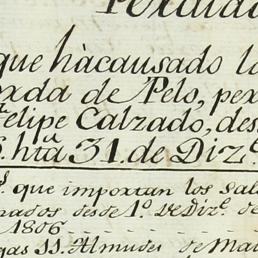 Perdida
que hàcausado la
de Pelo, pex
Felipe Calzado, des
htã 31. de Dizᵉ
que importan los Sala
nados desde 1º. de Dizᵉ. de
1806
gas SS. Almudes de Ma